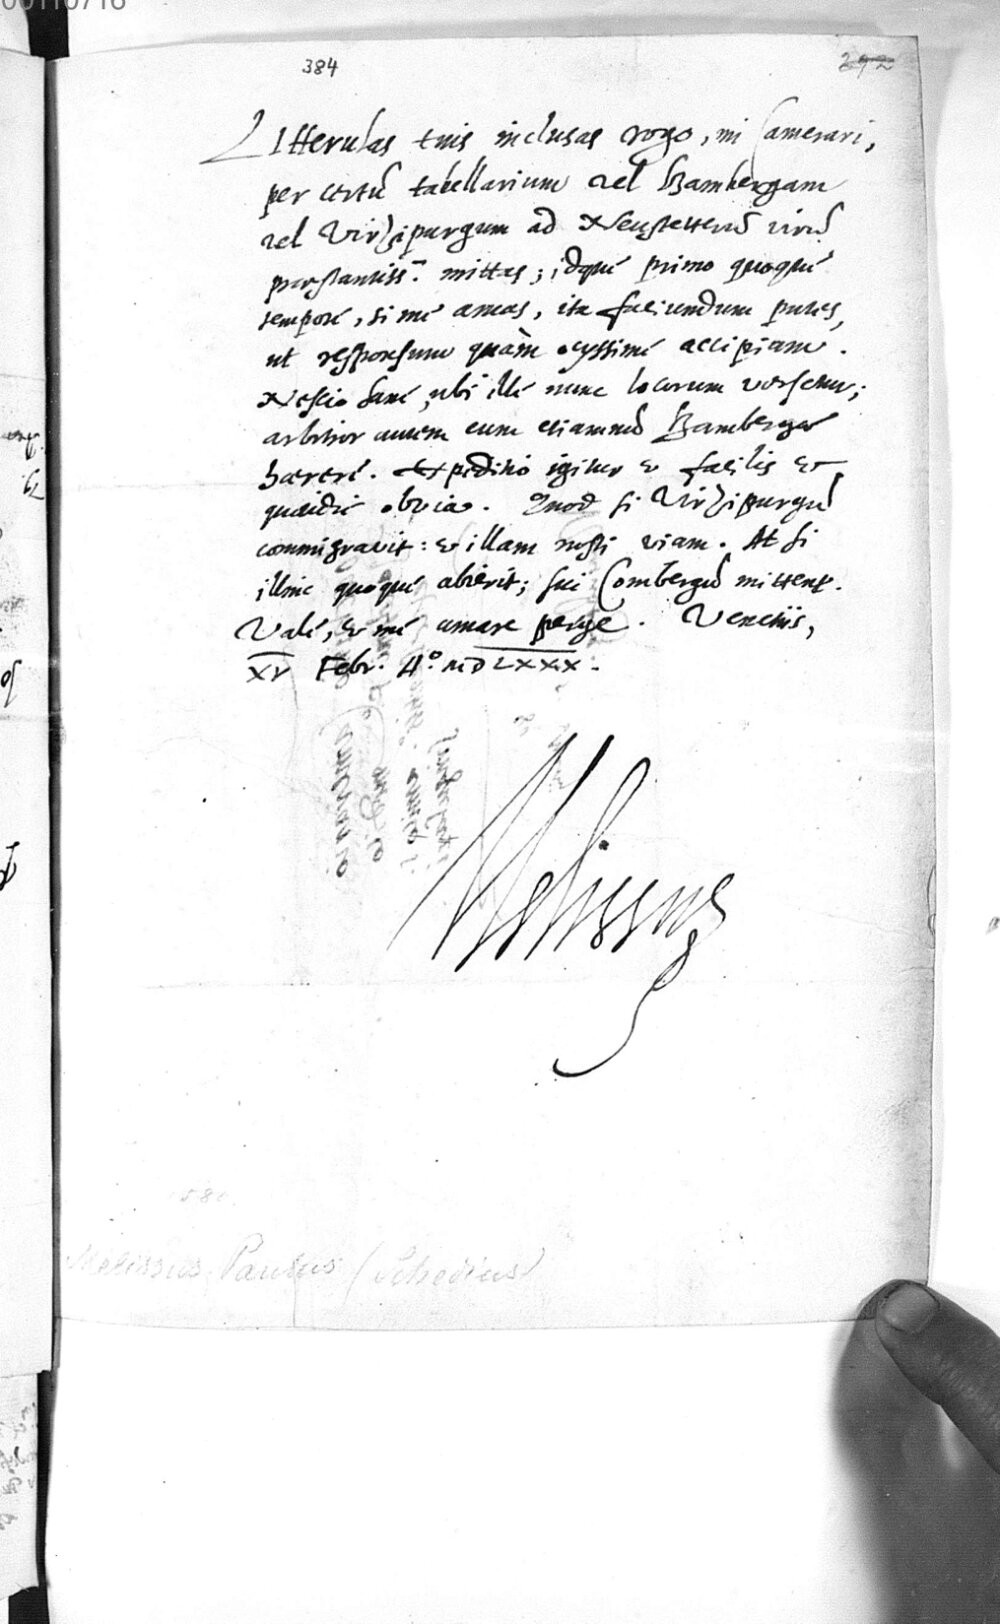 00110716
384
292
LItterulas tuis inclusas rogo, mi Camerari,
per certũ tabellarium vel Bambergam
vel Virzipurgum ad Neustetterũ virũ
praestantiss.m mittas; idque primo quoque
tempore, si me amas, ita faciundum putes,
ut responsum quàm ocyssime accipiam.
Nescio sane, ubi ille nunc locorum versetur;
arbitror autem eum etiamnũ Bambergae
haerere. Expeditio igitur & facilis &
quotidie obvia. Quod si Virzipurgũ
commigravit: & illam nosti viam. At si
illinc quoque abierit; sui Combergũ mittent.
Vale, & me amare perge. Venetiis,
XV Febr. A.º MDLXXX.
Melissus
580
Melissus Paulus (Schedius)